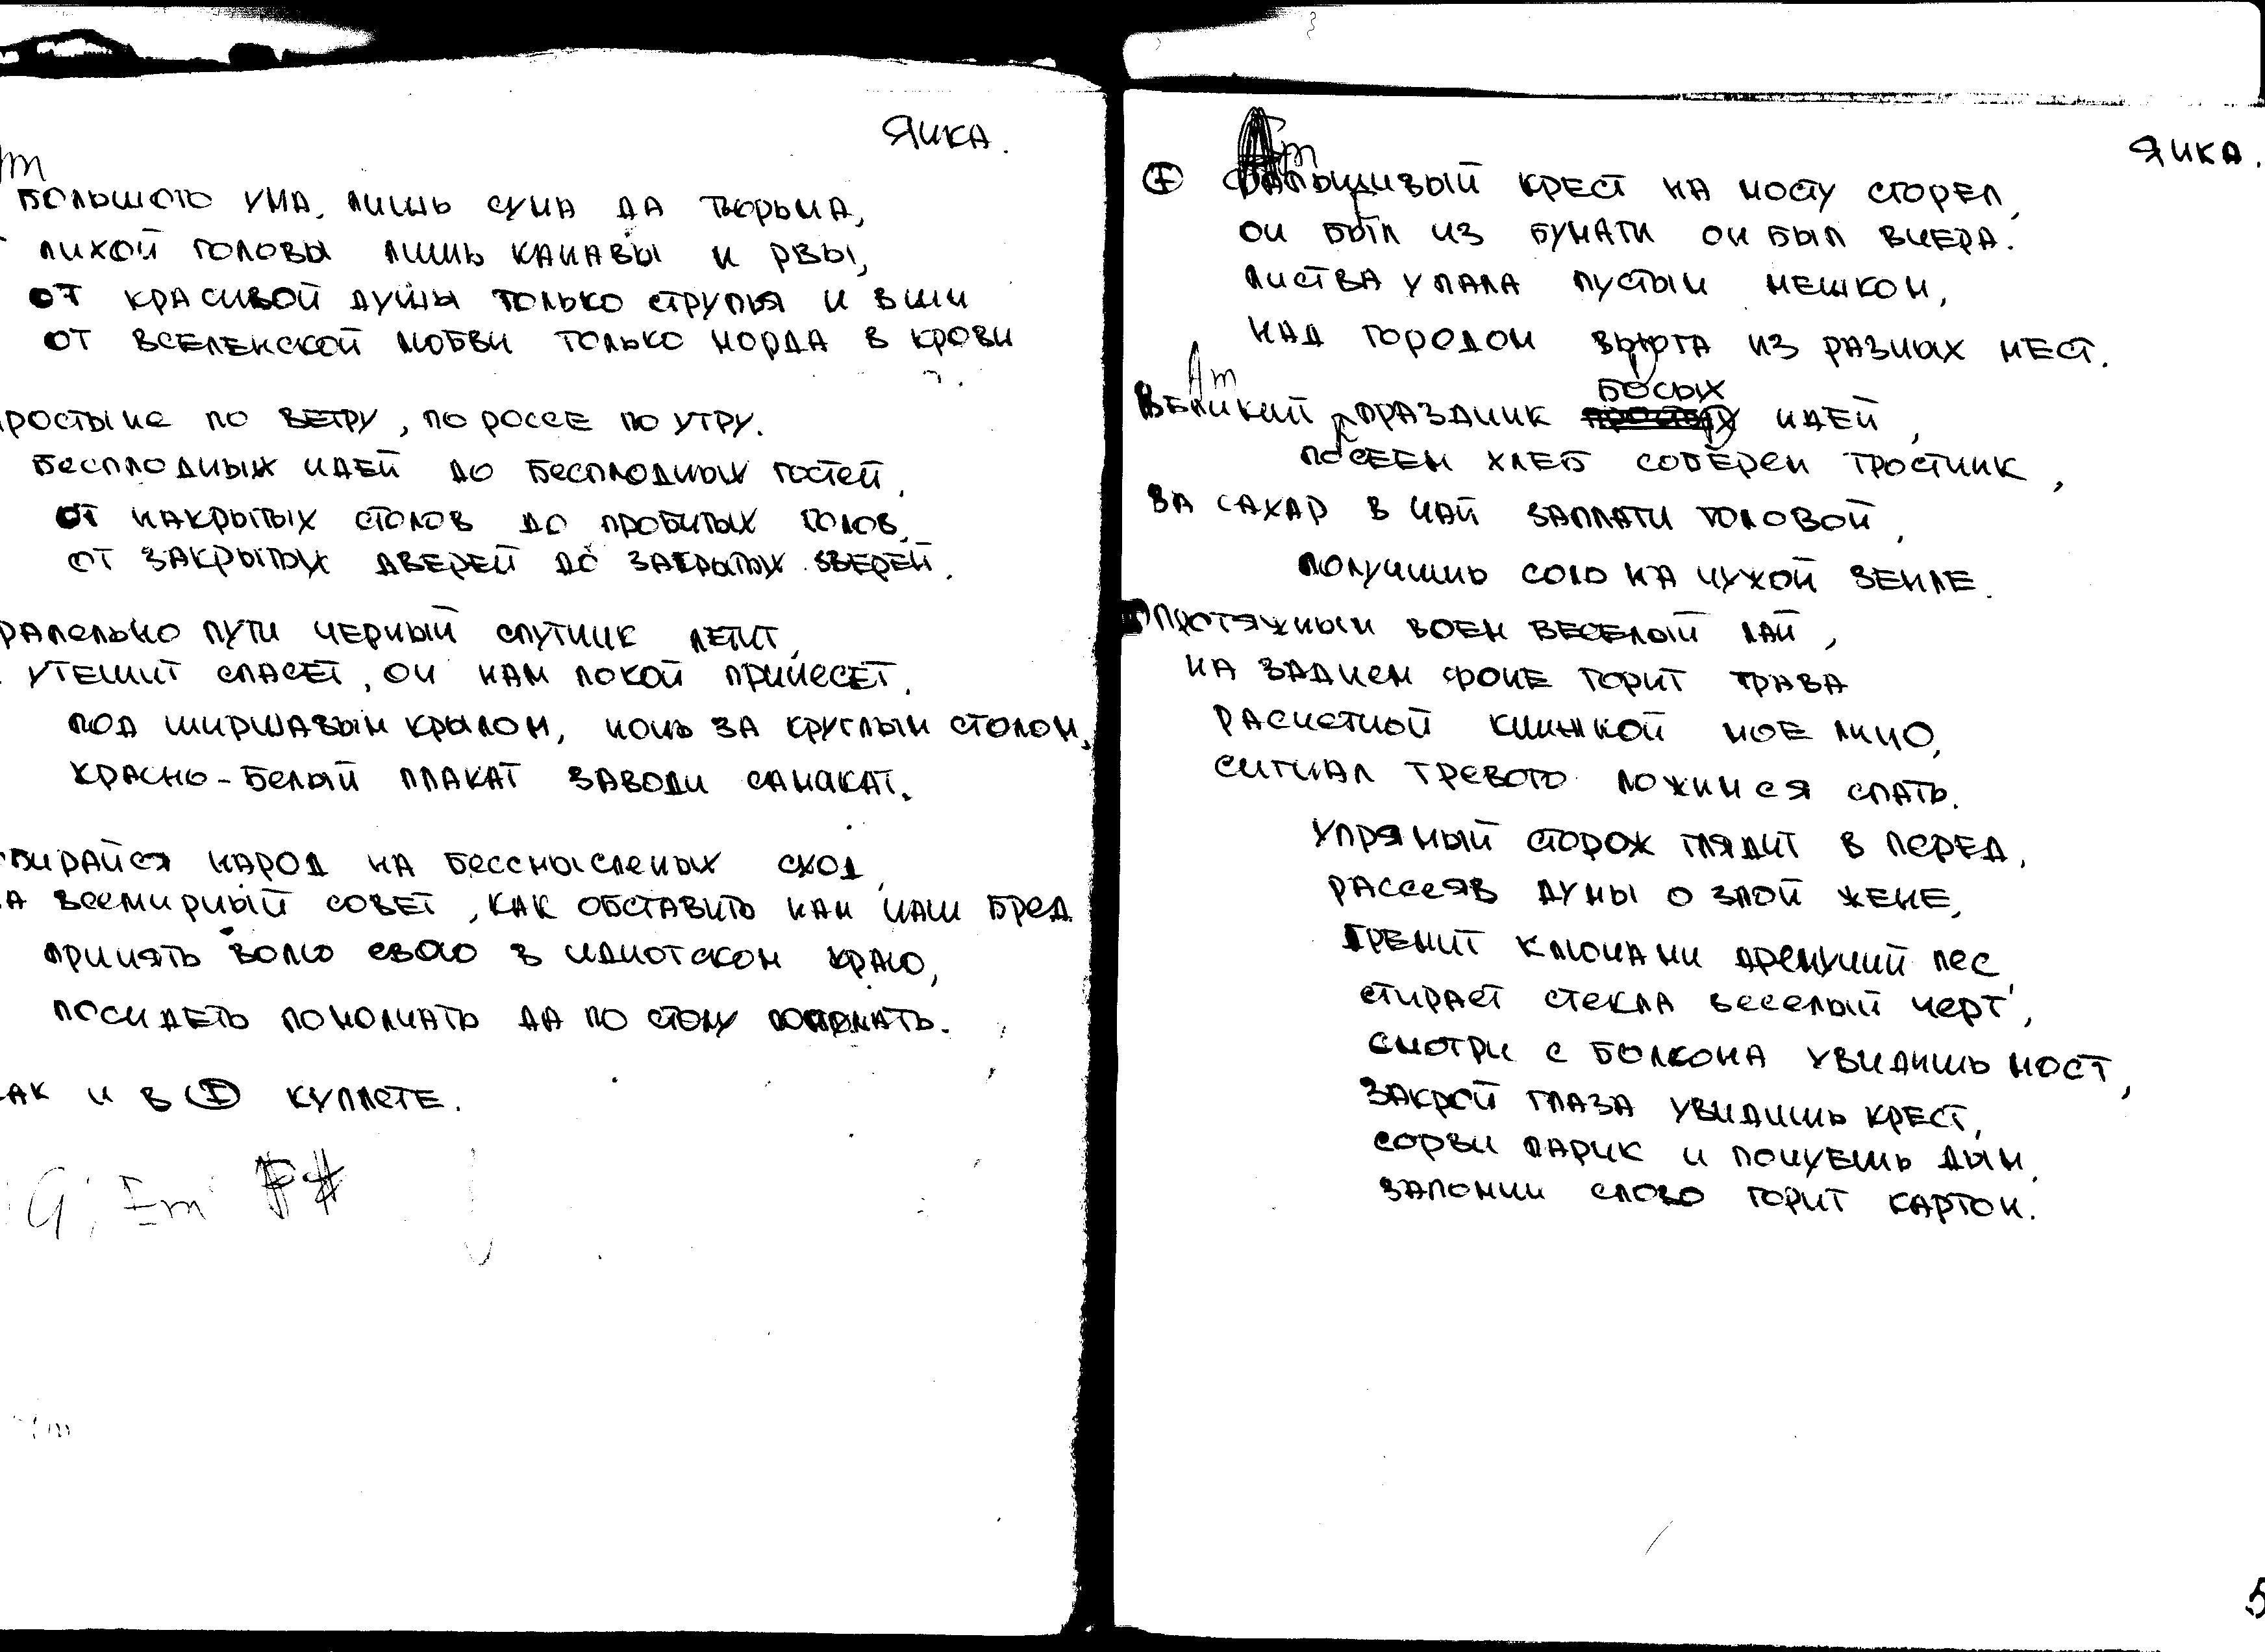 Янка.
Am
большого ума, лишь сума да тюрьма,
лихой головы лишь канавы и рвы,
от красивой душы только струпья и вши
от вселенской любви только морда в крови
простыне по ветру, по россе по утру.
бесплодных идей до бесплодных гостей,
от накрытых столов до пробитых голов,
от закрытых дверей до закрытых зверей.
ралельно пути черный спутник летит,
утешит спасет, он нам покой принесет.
под ширшавым крылом, ночь за круглым столом,
красно-белый плакат заводи самокат.
бирайся народ на бессмысленых сход,
а всемирный совет, как обставить нам наш бред
принять волю свою в идиотском краю,
посидеть помолчать да по столу постучать.
ак и в I куплете.
G; Em F#
Янка.
Am
I Фальшивый крест на мосту сгорел,
он был из бумаги он был вчера.
листва упала пустым мешком,
над городом вьюга из разных мест.
Am
босых
Великий праздник идей,
посеем хлеб соберем тростник,
За сахар в чай заплати головой,
получишь соль на чужой земле.
Протяжным воем веселый лай,
на заднем фоне горит трава
расчетной книжкой мое лицо,
сигнал тревого ложимся спать.
Упрямый сторож глядит в перед,
рассеяв думы о злой жене,
гремит ключами дремучий лес,
стирает стекла веселый черт,
смотри с болкона увидишь мост,
закрой глаза увидишь крест,
сорви парик и почуешь дым,
запомни слово горит картон.
5